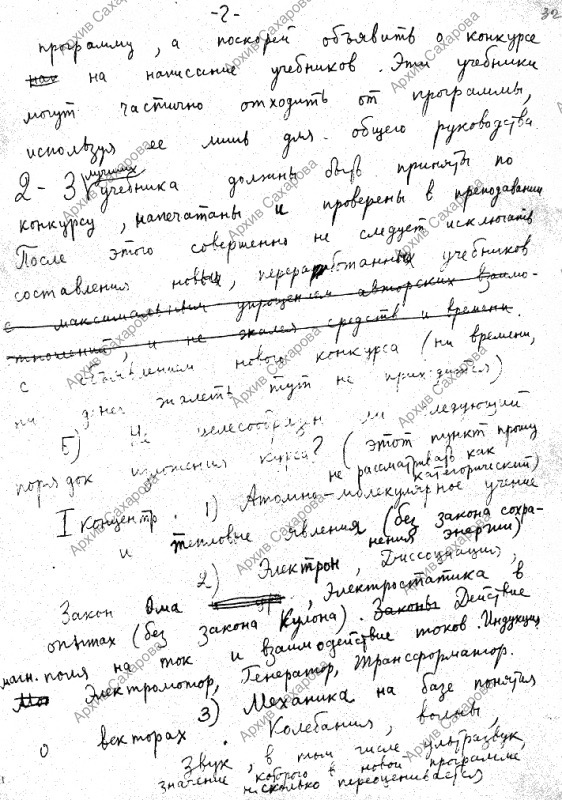 -2-
32
программу, а поскорей объявить о конкурсе
на написание учебников. Эти учебники
могут частично отходить от программы,
используя ее лишь для общего руководства.
2-3 лучших учебника должны быть приняты по
конкурсу, напечатаны и проверены в преподавании
После этого совершенно не следует исключать
составления новых, переработанных учебников
с максимальным упрощением авторских взаимо-
тношений, и не жалея средств и времени.
с объявлением нового конкурса (ни времени,
ни денег жалеть тут не приходится)
Б) Не целесообразен ли следующий
порядок изложения курса? (этот пункт прошу
не рассматривать как
категорический)
I концентр. 1) Атомно-молекулярное учение
и тепловые явления (без закона сохра-
нения энергии)
2) Электрон, Диссоциация,
Закон Ома, Электростатика в
опытах (без закона Кулона). Законы Действие
магн. поля на ток и взаимодействие токов. Индукция,
Электромотор, Генератор, Трансформатор.
3) Механика на базе понятия
о векторах. Колебания, волны,
Звук, в том числе ультразвук,
значение которого в новой программе,
несколько переоценивается
Архив Сахарова